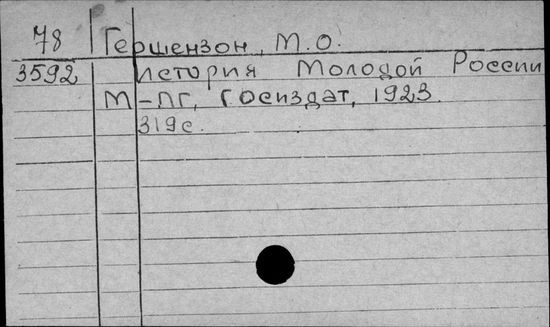 78 Гершензон, М.О.
3592 История Молодой России
М-ПГ, Госиздат, 1923.
319с.